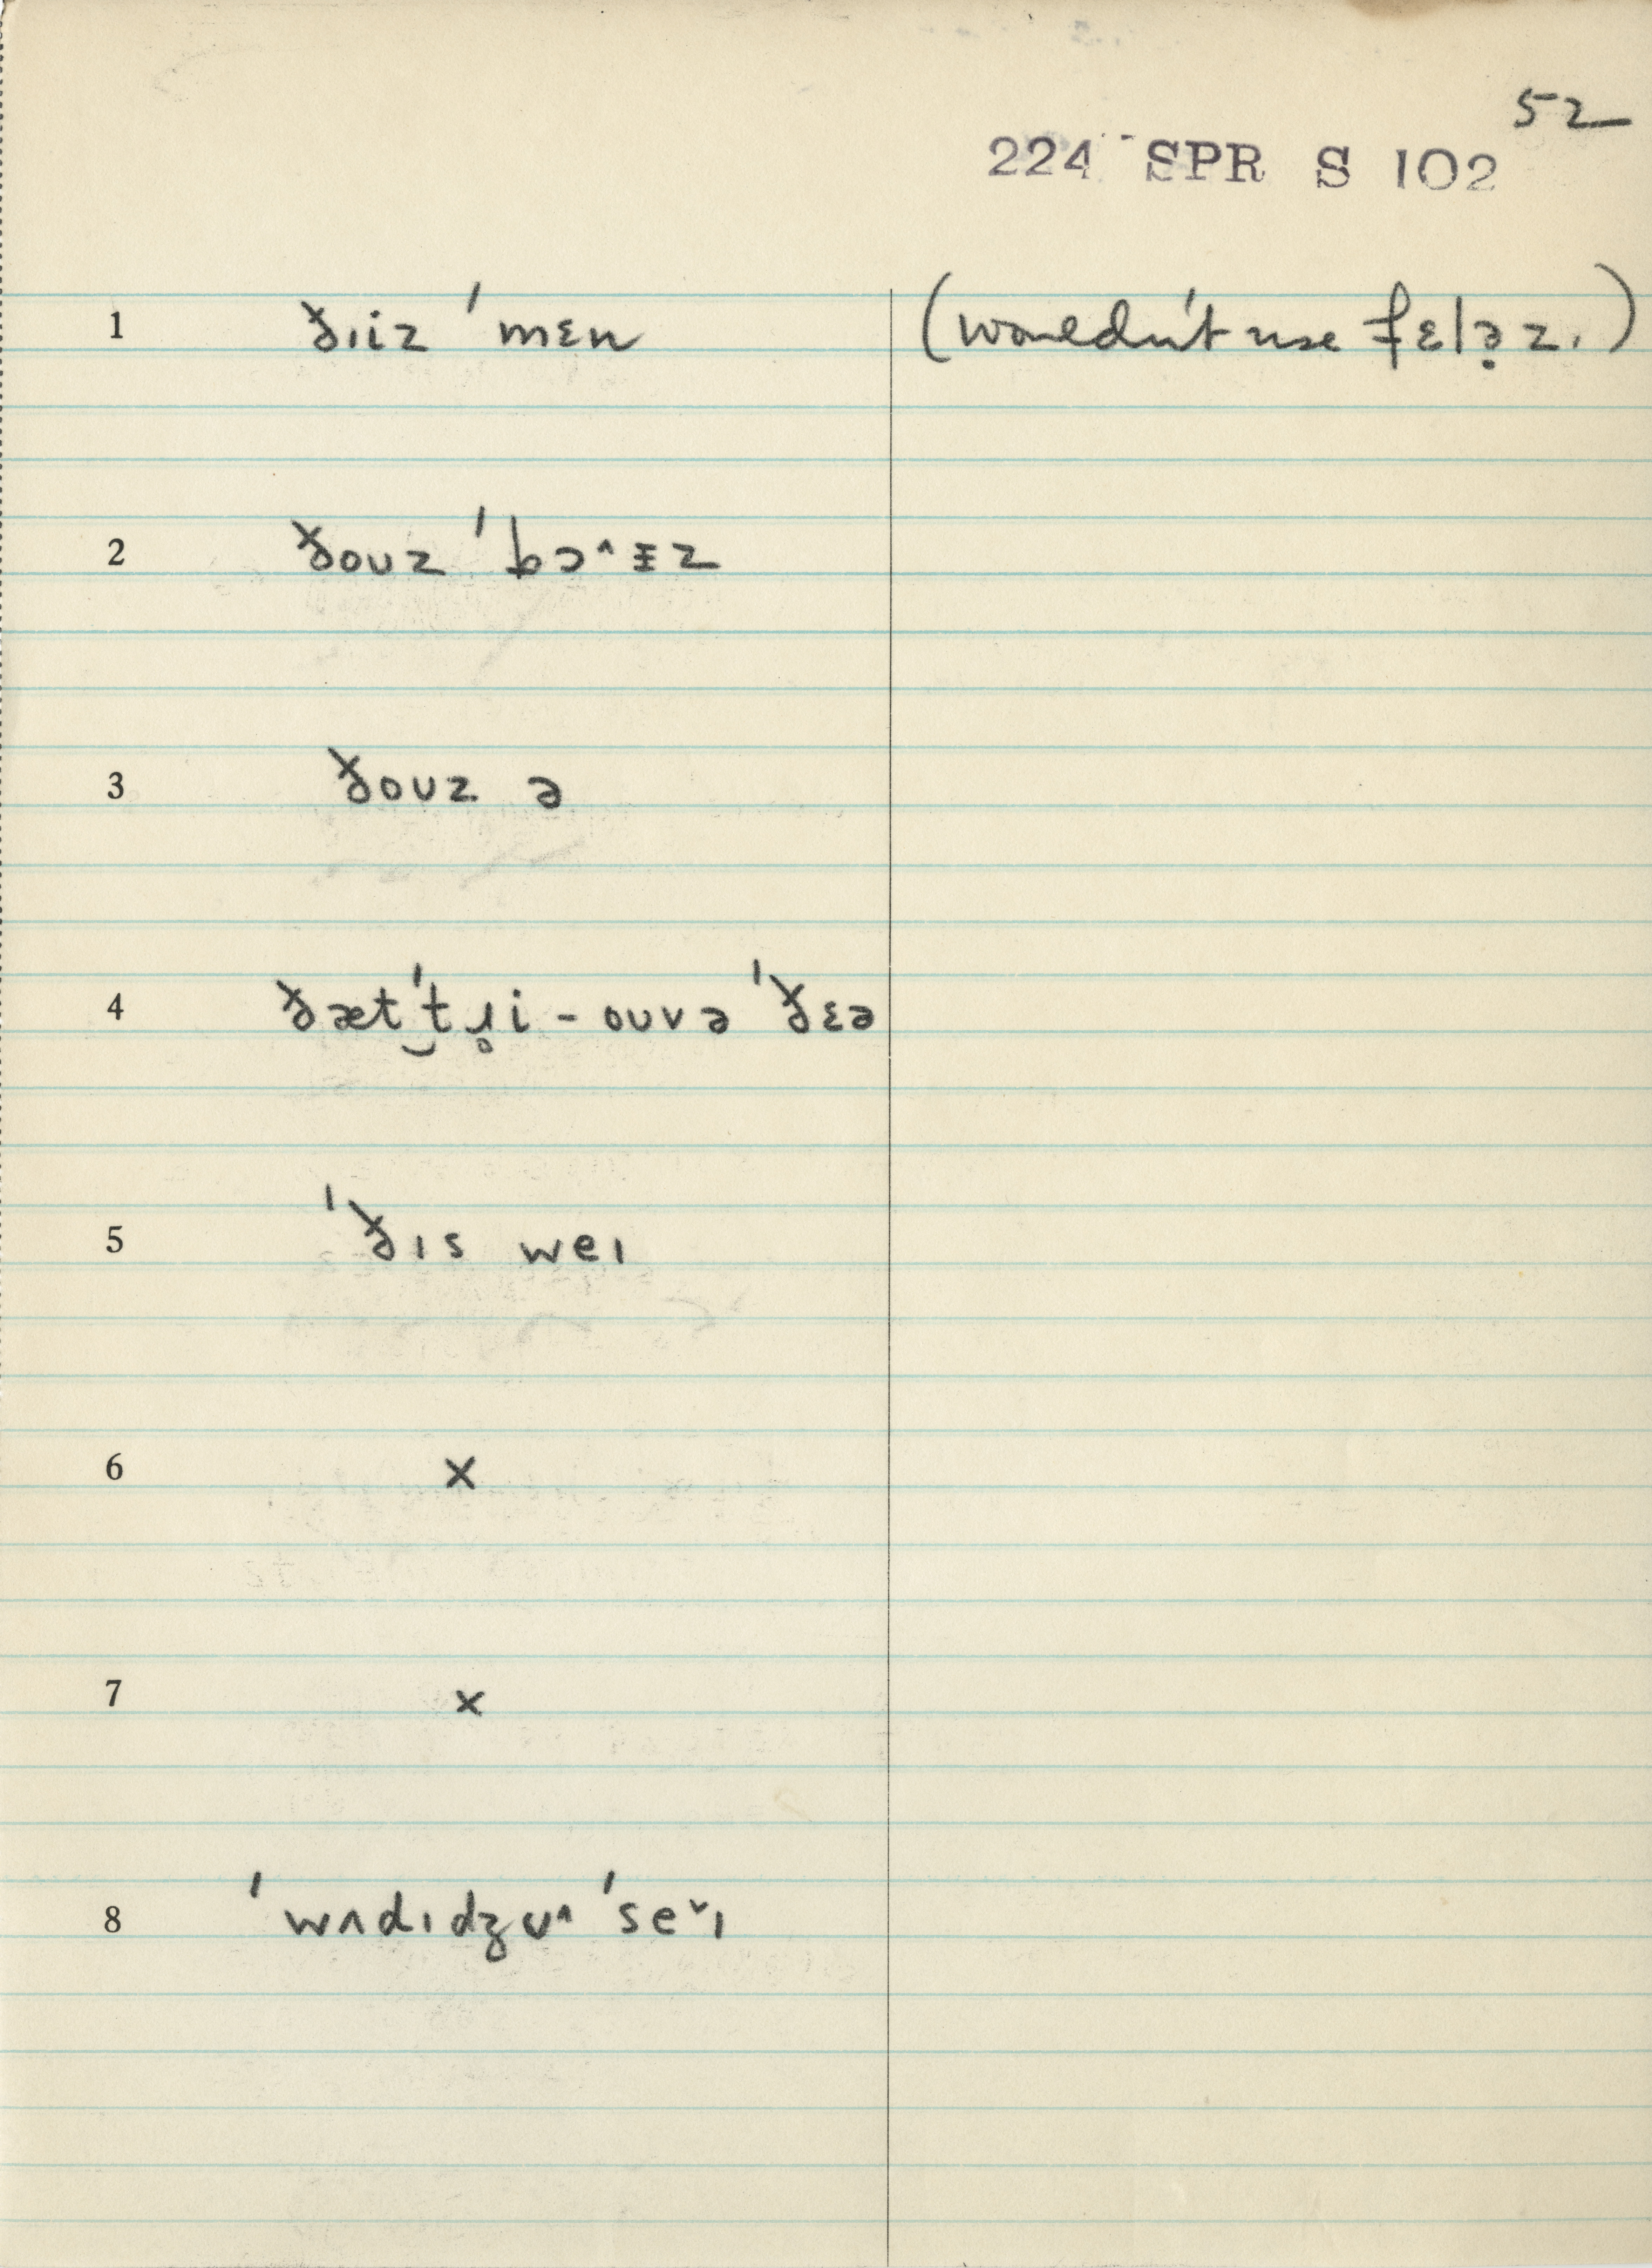 52
224 SPR S 102
1 ðɪiz ˈmɛn (wouldn't use fɛlə̣z.)
2 ðoʊz ˈbɔ^ɪ̵z
3 ðoʊz ə
4 ðætˈt̮ɹ̥i - oʊvə ˈðɛə
5 ˈðɪs weɪ
6 x
7 x
8 ˈwʌdɪdʒʊ^ ˈseˇɪ